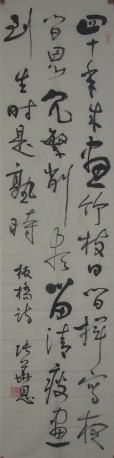 四十年来画竹枝日间挥写夜
间思冗繁削尽留清瘦画
到生时是熟时
板桥诗 张华恩